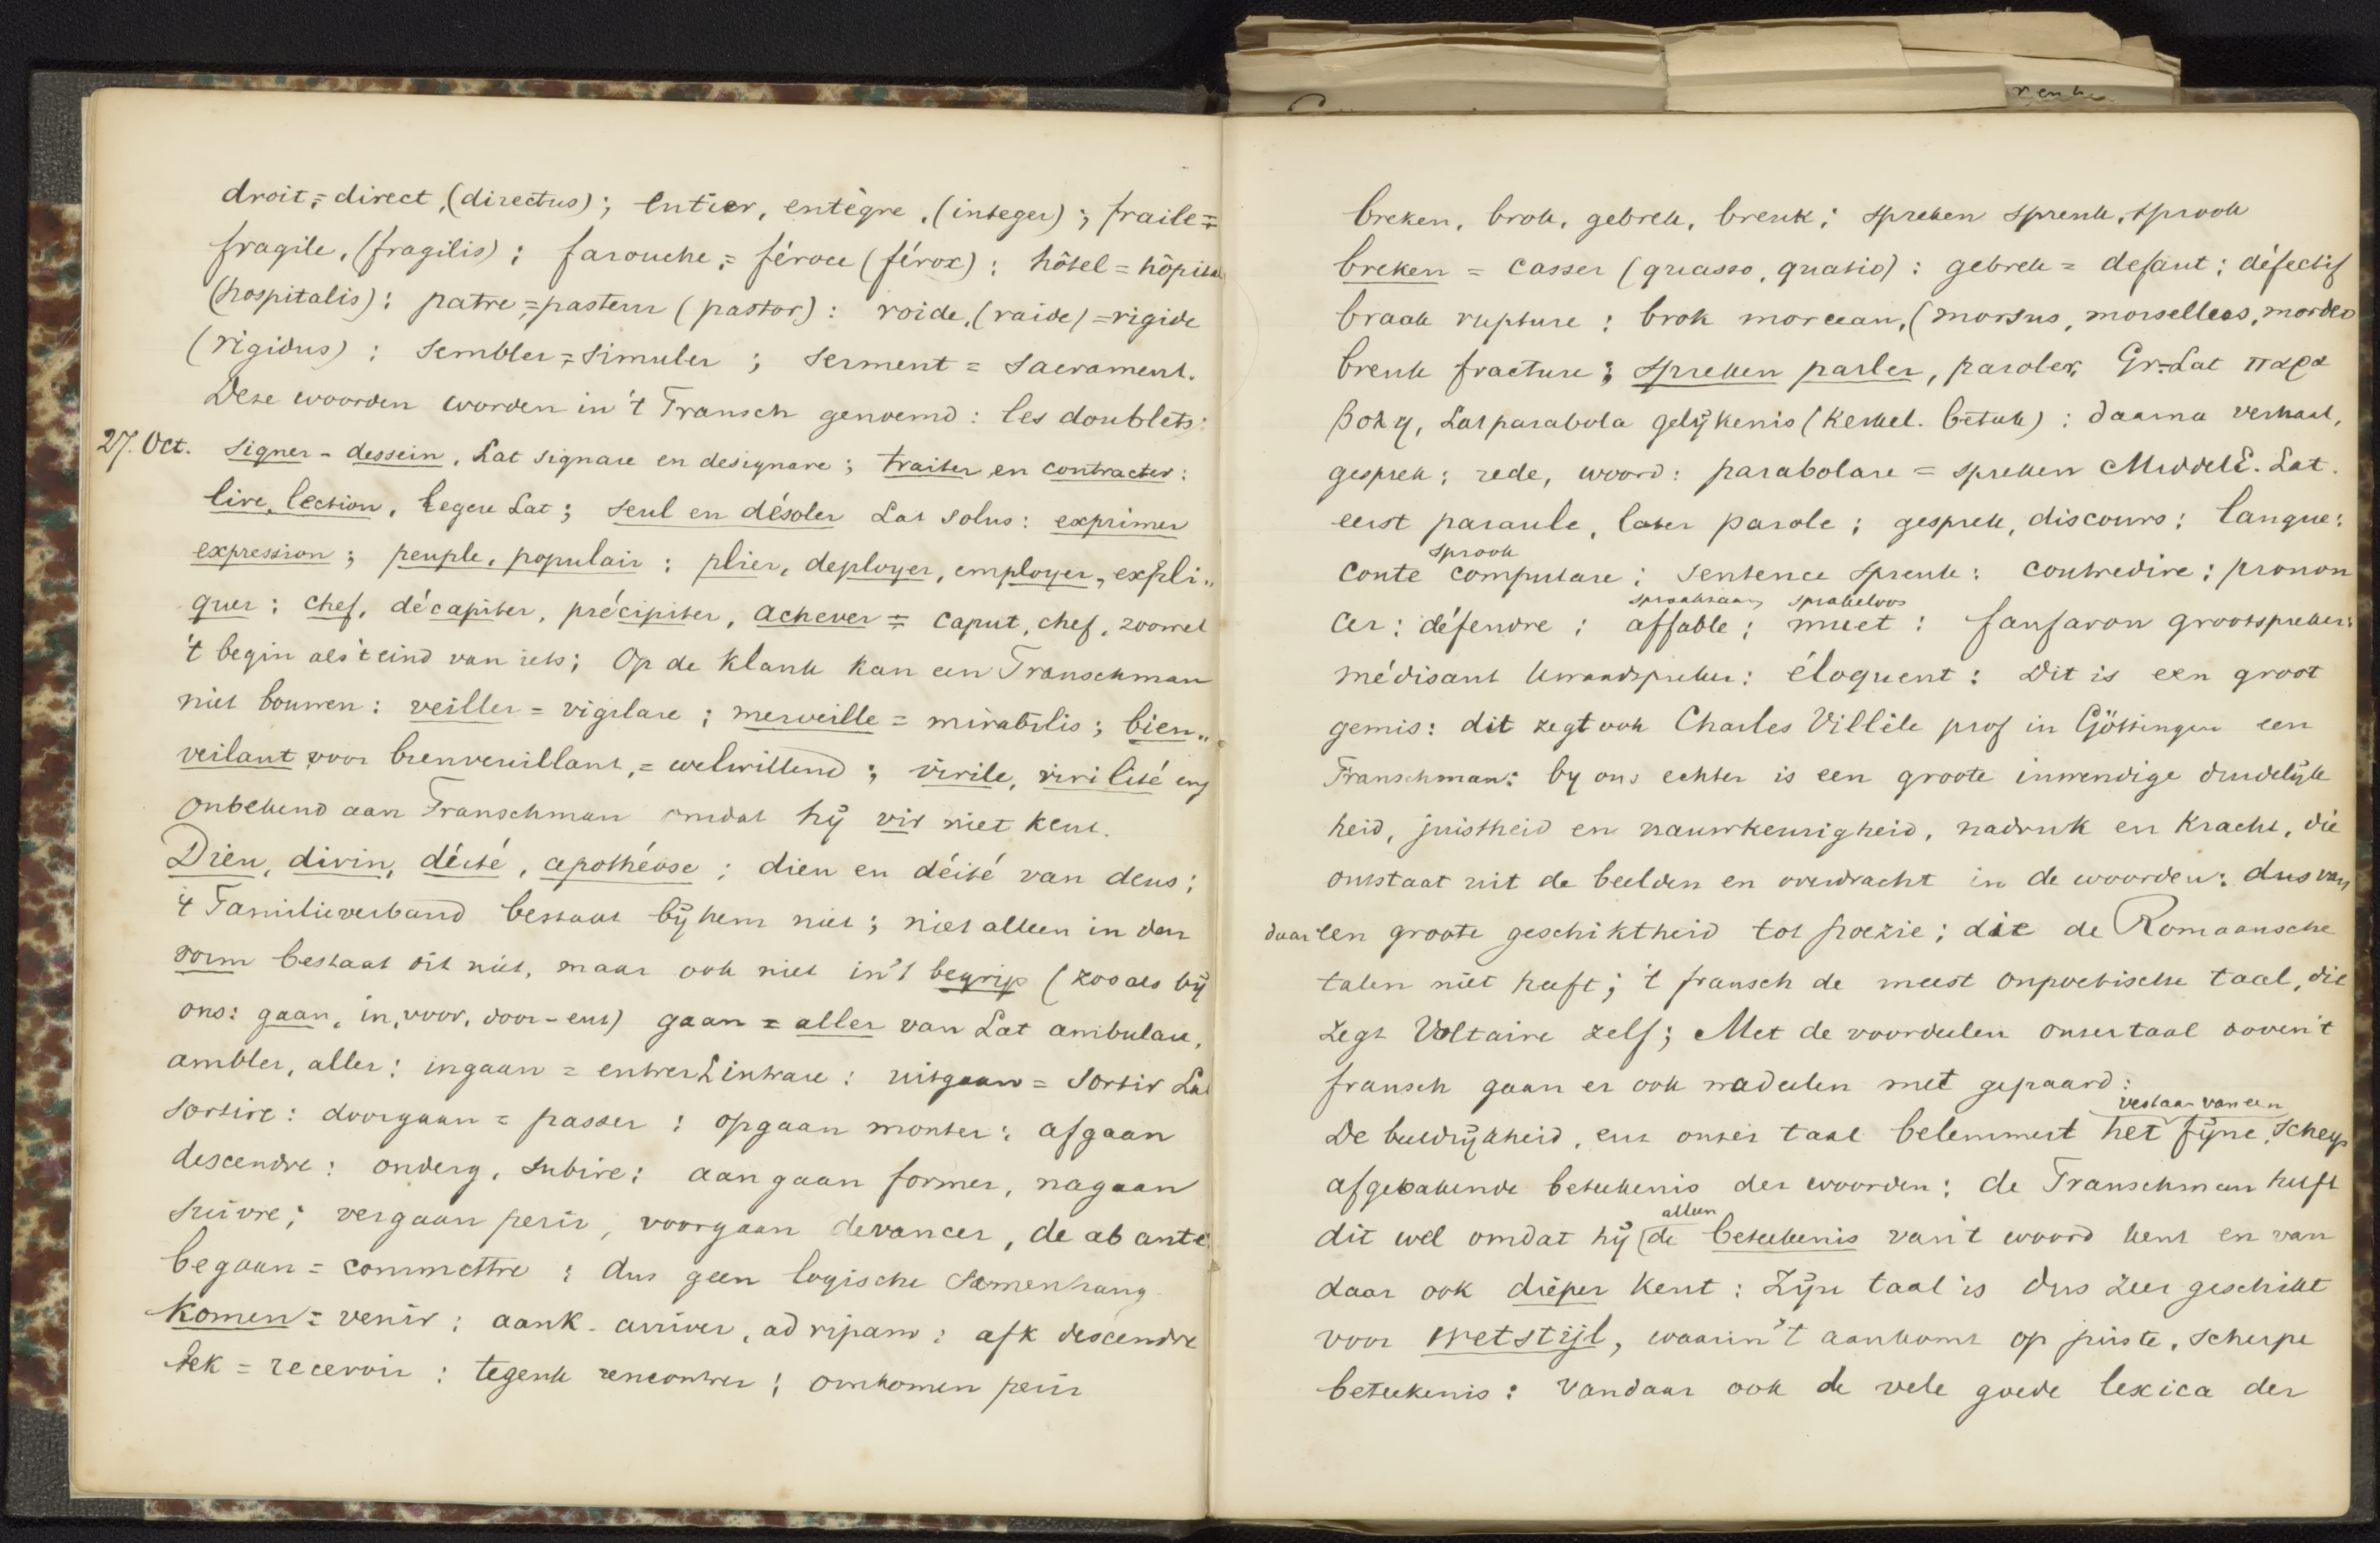 droit = direct, (directus); entier, entègre, (integer); fraile =
fragile, (fragilis); farouche, = féroce (férox): hôtel = hôpital
(hospitalis): patre = pasteur (pastor): roide, (raide) = rigide
(rigidus): sembler = simuler; serment = sacrament.
Deze woorden worden in 't Fransch genoemd: les doublets:
27. Oct. signer - dessein, Lat signare en designare; traiter en contracter:
lire, lection, legere Lat; seul en désoler Lat solus: exprimer
expression; peuple, populair: plier, deployer, employer, expli„
quer: chef, décapiter, précipiter, achever = caput, chef, zoowel
't begin als 't eind van iets; Op de klank kan een Franschman
niet bouwen: veiller = vigilare; merveille = mirabilis; bien„
veilant voor bienveuillant, = welwillend; virile, virilité enz
onbekend aan Franschman omdat hij vir niet kent.
Dieu, divin, déité, apothéose; dieu en déité van deus;
't Familieverband bestaat bij hem niet; niet alleen in den
vorm bestaat dit niet, maar ook niet in 't begrip (zooals bij
ons: gaan, in, voor, door - enz) gaan = aller van Lat ambulare,
ambler, aller: ingaan = entrer L intrare: uitgaan = sortir Lat
sortire: doorgaan = passer: opgaan monter: afgaan
descendre: onderg. subire: aangaan former, nagaan
suivre; vergaan perir, voorgaan devancer, de ab ante
begaan = commettre; dus geen logische samenhang
Komen = venir: aank. arriver, ad ripam: afk descendre
bek = recevoir: tegenk rencontrer; omkomen perir
breken, brok, gebrek, breuk; spreken spreuk, sprook
breken = casser (quasso, quatio): gebrek = defaut; défectif
braak rupture: brok morceau, (morsus, morsellus, mordeo
breuk fracture; spreken parler, paroler, Gr=Lat παρα
βολη, Lat parabola gelijkenis (kerkel. betek): daarna verhaal,
gesprek; rede, woord: parabolare = spreken MiddelE. Lat.
eerst paraule, later parole; gesprek, discours: langue:
sprook
conte computare; sentence spreuk: contredire; pronon
spraakzaam sprakeloos
cer: défendre; affable; muet: fanfaron grootspreker:
médisant kwaadspreker: éloquent: Dit is een groot
gemis: dit zegt ook Charles Villèle prof in Göttingen een
Franschman: by ons echter is een groote inwendige duidelijk
heid, juistheid en nauwkeurigheid, nadruk en kracht, die
ontstaat uit de beelden en overdracht in de woorden: dus van
daar een groote geschiktheid tot poezie; die de Romaansche
talen niet heeft; 't fransch de meest onpoetische taal, die
zegt Voltaire zelf; Met de voordeelen onzer taal boven 't
fransch gaan er ook nadeelen met gepaard:
verstaan van een
De beeldrijkheid, enz onzer taal belemmert het fijne, scherp
afgebakende beteekenis der woorden: de Franschman heeft
alleen
dit wel omdat hij de beteekenis van 't woord kent en van
daar ook dieper kent: Zijn taal is dus zeer geschikt
voor wetstijl, waarin 't aankomt op juiste, scherpe
beteekenis: vandaar ook de vele goede lexica der